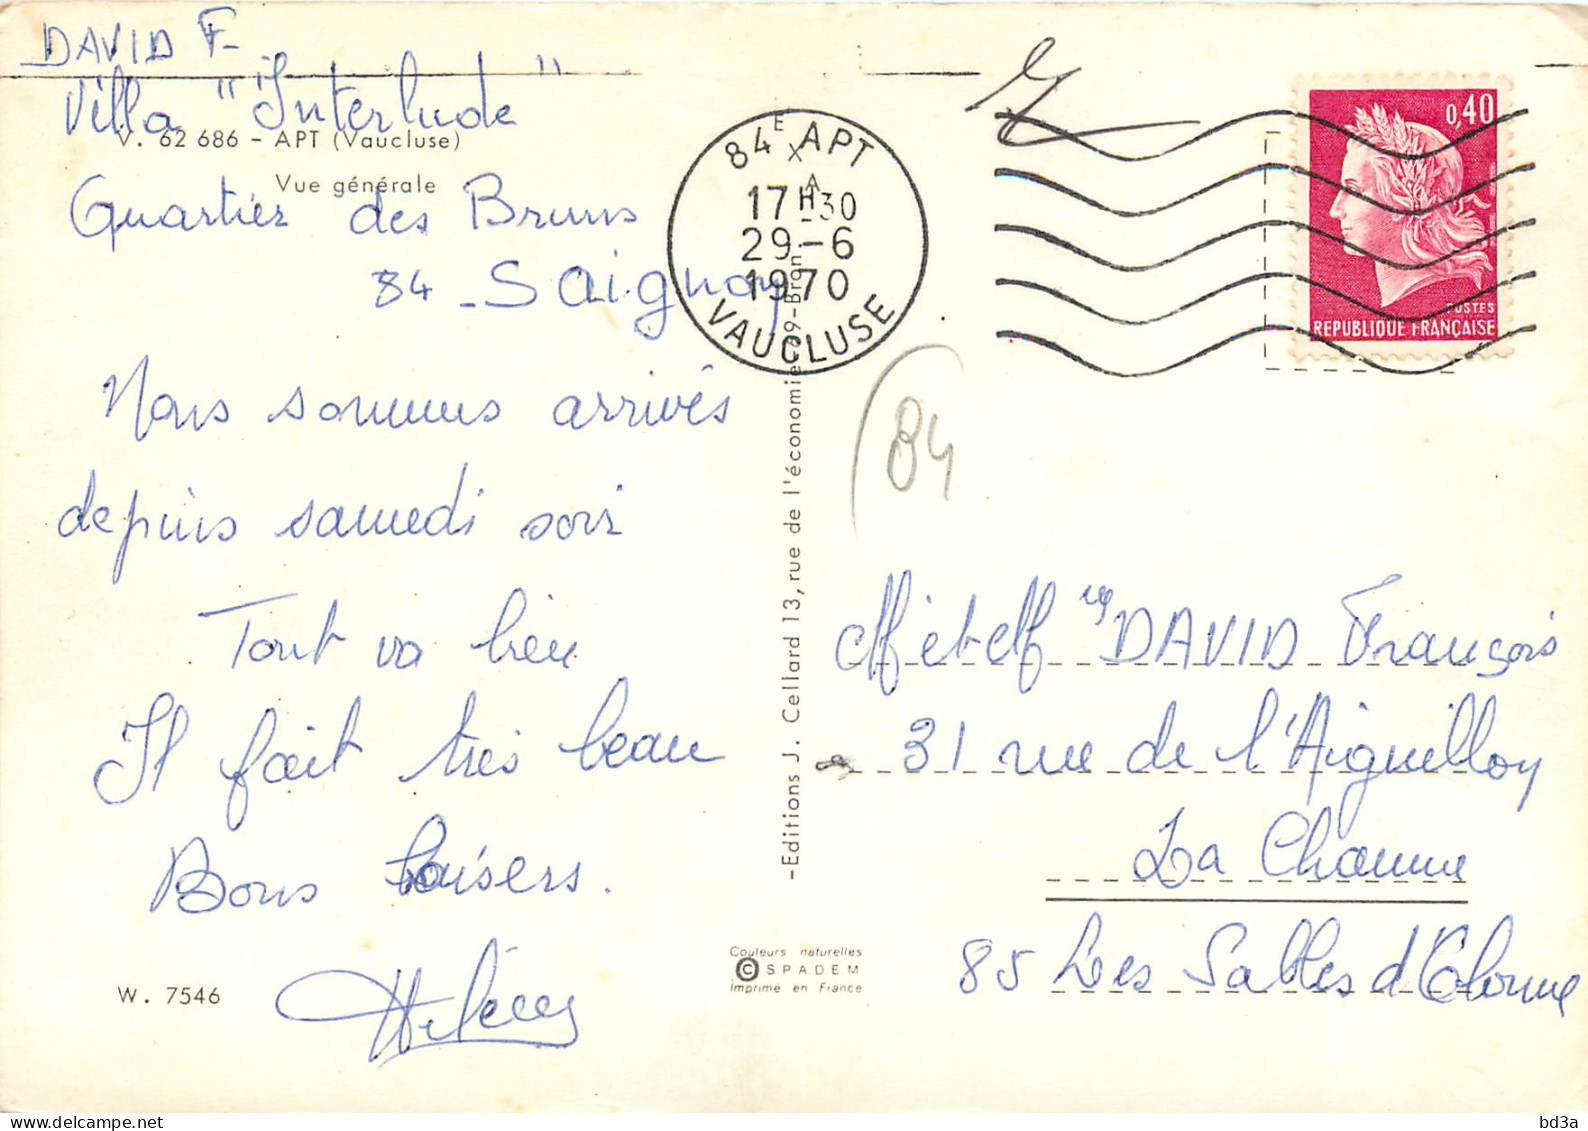 DAVID F
Villa "Interlude"
V. 62 686 - APT (Vaucluse)
Vue générale
Quartier des Bruns
84 - Saignon
Nous sommes arrivés
depuis samedi soir
Tout va bien
Il fait très beau
Bons baisers.
W. 7546
84E APT
17H30
A
29-6
1970
VAUCLUSE
-Editions J. Cellard 13, rue de l'économie 69-Bron
Couleurs naturelles
© SPADEM
Imprimé en France
0,40
POSTES
REPUBLIQUE FRANÇAISE
84
M et M DAVID François
31 rue de l'Aiguillon
La Chaume
85 Les Sables d'Olonne
bd3a